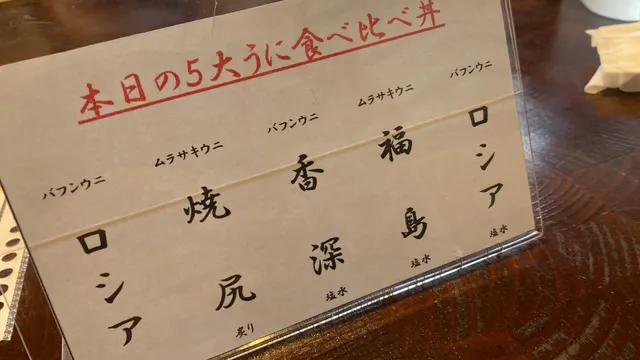 本日の5大うに食べ比べ丼
バフンウニ
ロシア
塩水
ムラサキウニ
福島
塩水
バフンウニ
香深
塩水
ムラサキウニ
焼尻
炙り
バフンウニ
ロシア